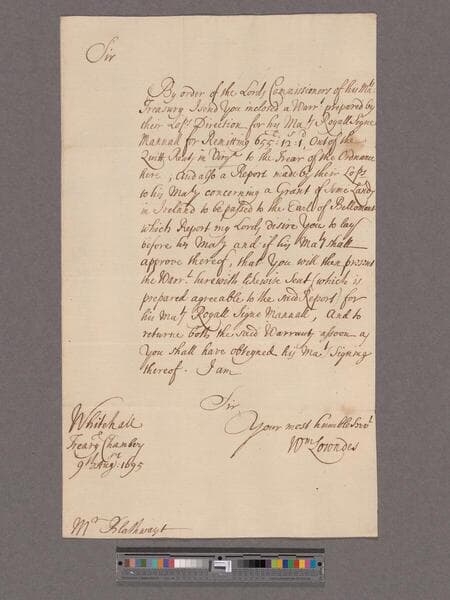 Sir
By order of the Lords Commissioners of his Mats
Treasury I send You inclosed a Warrt prepared by
their Lops Direction for his Maty Royall Signe
Mannall for Remitting 655£:12s:1d Out of the
Quitt Rents in Virga to the Trear of the Ordnance
here, And also a Report made by their Lops
to his Maty concerning a Grant of Some Lands
in Ireland to be passed to the Earle of Bellomont
which Report my Lords desire You to lay
before his Maty and if his Maty shall
approve thereof, that You will then present
the Warrt herewith likewise Sent (which is
prepared agreable to the said Report) for
his Maty Royall Signe Mannall, And to
returne both the said Warrants assoon as
You shall have obteyned his Mats Signing
thereof. I am
Sir
Your most humble Servt
Wm Lowndes
Whitehall
Treary Chambers
9th Augt 1695
Mr Blathwayt